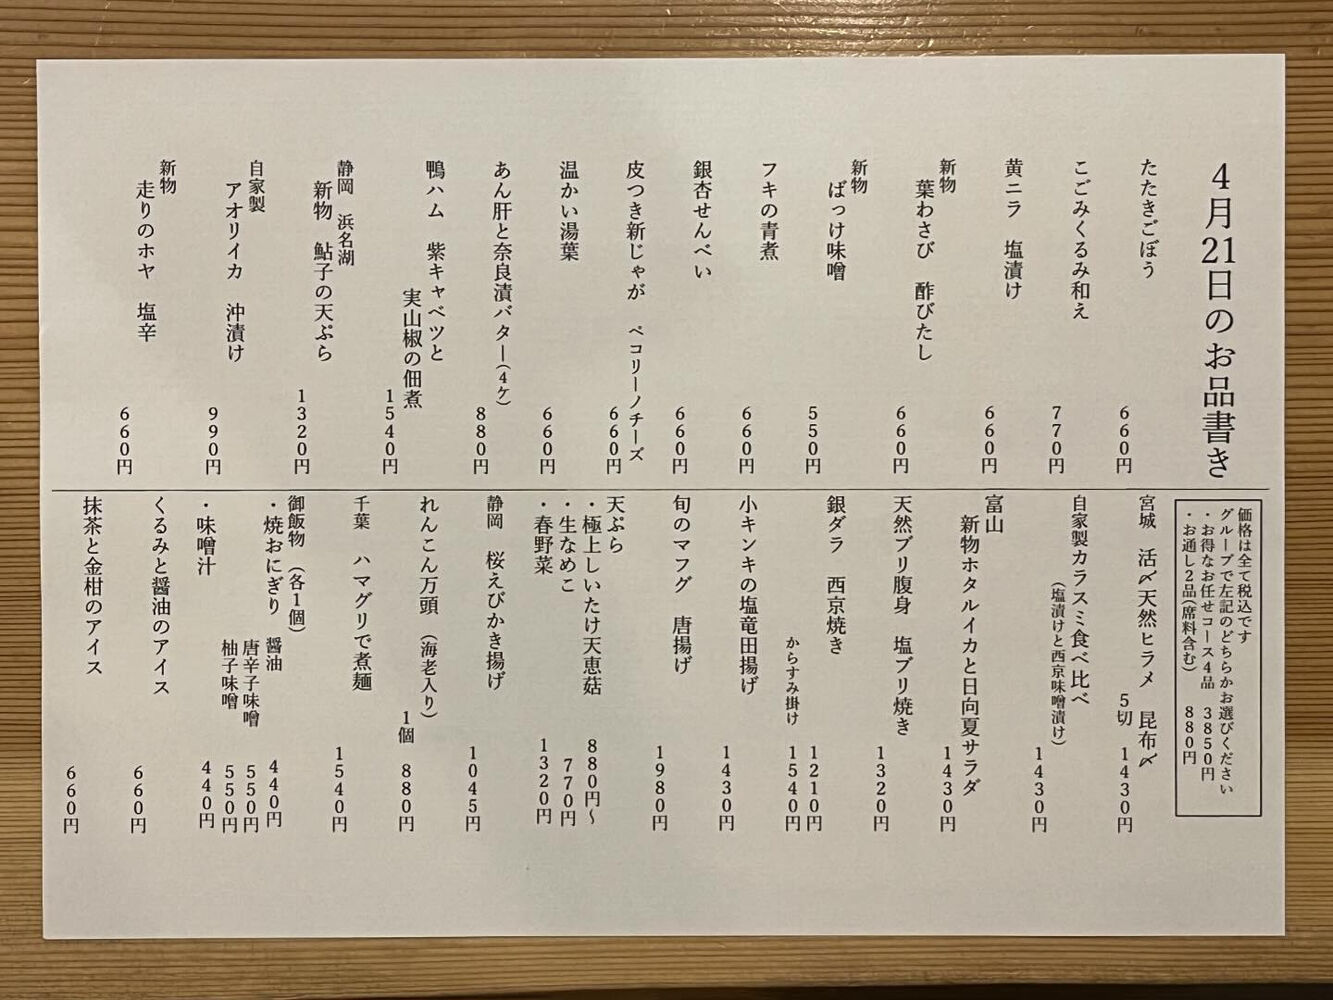 4月21日のお品書き
たたきごぼう
660円
こごみくるみ和え
770円
黄ニラ 塩漬け
660円
新物
葉わさび 酢びたし
660円
新物
ばっけ味噌
550円
フキの青煮
660円
銀杏せんべい
660円
皮つき新じゃが ペコリーノチーズ
660円
温かい湯葉
660円
あん肝と奈良漬バター(4ケ)
880円
鴨ハム 紫キャベツと
実山椒の佃煮
1540円
静岡 浜名湖
新物 鮎子の天ぷら
1320円
自家製
アオリイカ 沖漬け
990円
新物
走りのホヤ 塩辛
660円
価格は全て税込です
グループで左記のどちらかお選びください
・お得なお任せコース4品 3850円
・お通し2品(席料含む) 880円
宮城 活〆天然ヒラメ 昆布〆
5切 1430円
自家製カラスミ食べ比べ
(塩漬けと西京味噌漬け)
1430円
富山
新物ホタルイカと日向夏サラダ
1430円
天然ブリ腹身 塩ブリ焼き
1320円
銀ダラ 西京焼き
1210円
からすみ掛け 1540円
小キンキの塩竜田揚げ
1430円
旬のマフグ 唐揚げ
1980円
天ぷら
・極上しいたけ天恵菇 880円〜
・生なめこ 770円
・春野菜 1320円
静岡 桜えびかき揚げ
1045円
れんこん万頭 (海老入り)
1個 880円
千葉 ハマグリで煮麺
1540円
御飯物 (各1個)
・焼おにぎり 醤油 440円
唐辛子味噌 550円
柚子味噌 550円
・味噌汁 440円
くるみと醤油のアイス
660円
抹茶と金柑のアイス
660円